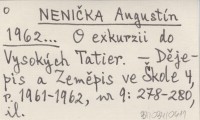 o
NENIČKA Augustín
1962... O exkurzii do
Vysokých Tatier. — Děje-
pis a Zeměpis ve Škole 4,
r. 1961-1962, nr 9: 278-280,
il.